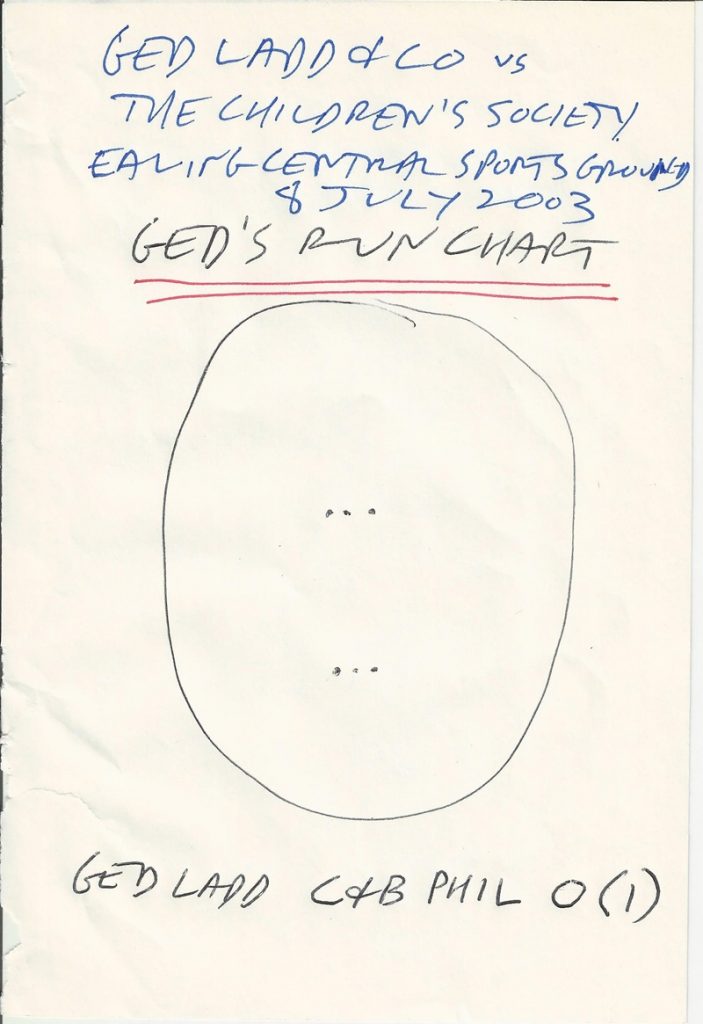 GED LADD & CO vs
THE CHILDREN'S SOCIETY
EALING CENTRAL SPORTS GROUND
8 JULY 2003
GED'S RUN CHART
GED LADD C&B PHIL 0 (1)